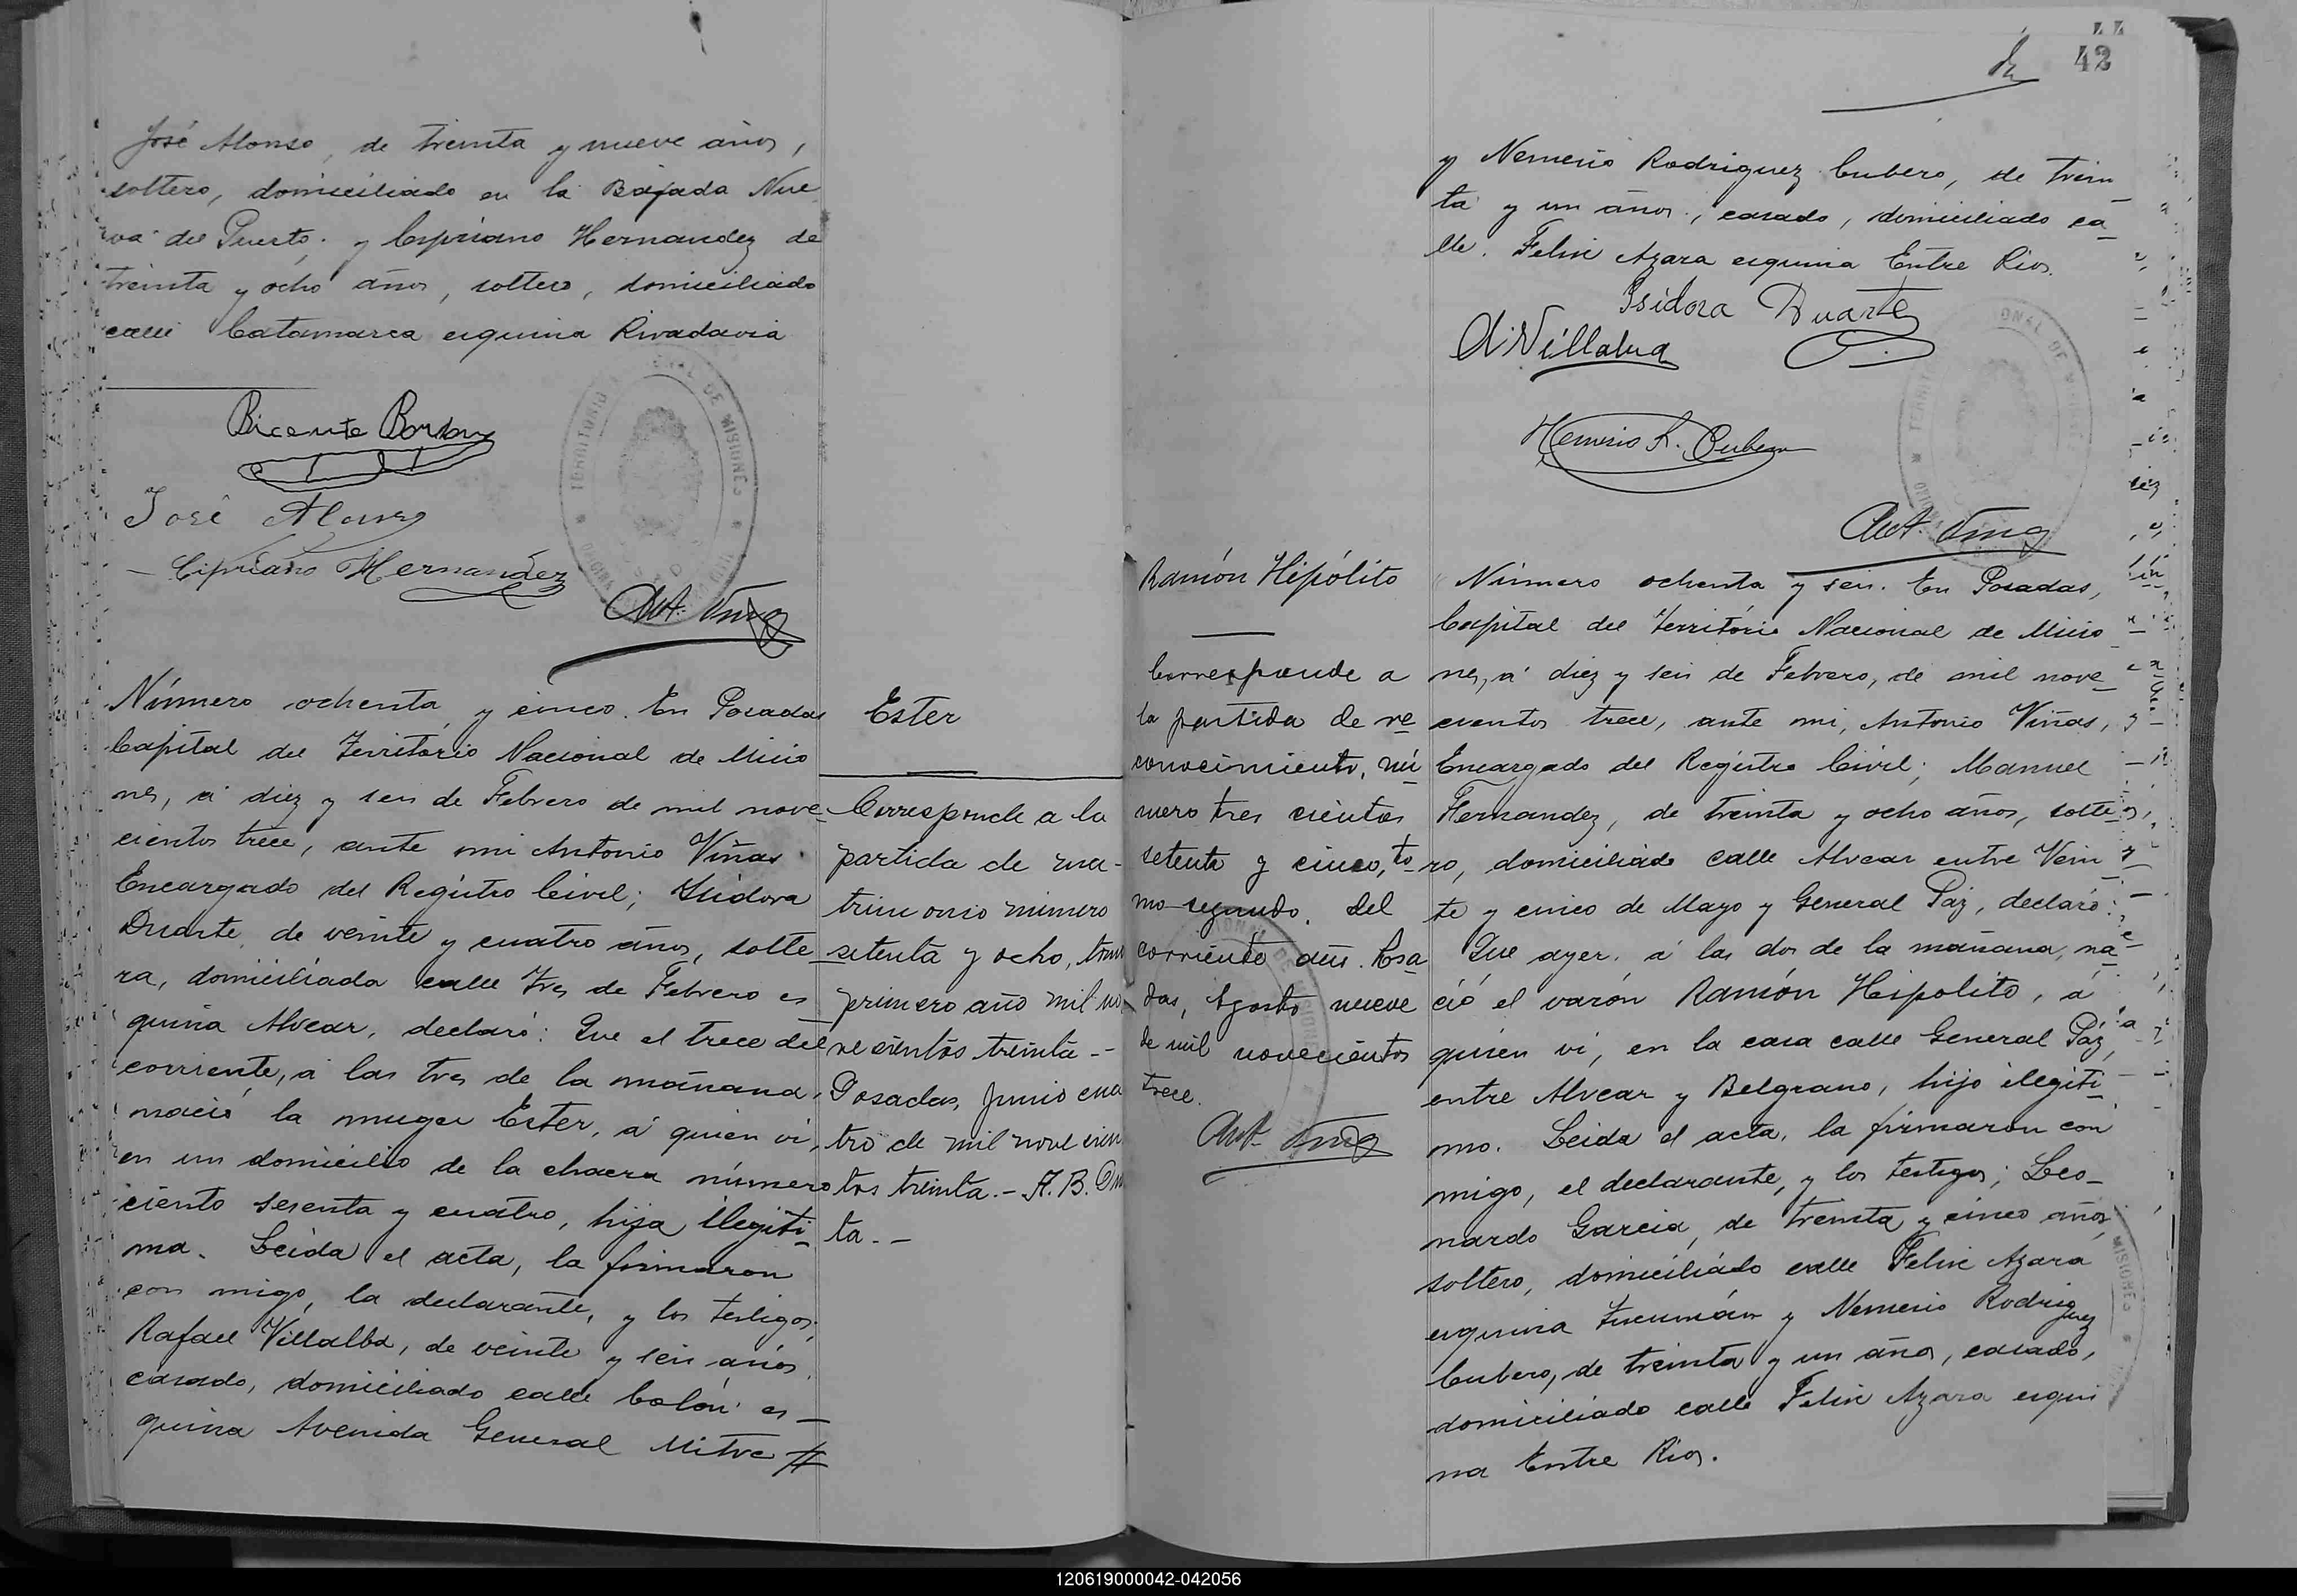 José Alonso, de treinta y nueve años,
soltero, domiciliado en la Bajada Nue
va del Puerto; y Cipriano Hernandez de
treinta y ocho años, soltero, domiciliado
calle Catamarca esquina Rivadavia
Bicente
José Alonso
Cipriano Hernandez
Ant. Viñas
Número ochenta y cinco. En Posadas
Capital del Territorio Nacional de Misio
nes, á diez y seis de Febrero de mil nove-
cientos trece, ante mi Antonio Viñas
Encargado del Registro Civil; Isidora
Duarte, de veinte y cuatro años, solte-
ra, domiciliada calle Tres de Febrero es
quina Alvear, declaró: Que el trece del
corriente, á las tres de la mañana,
nació la muger Ester, á quien vi,
en un domicilio de la chacra número
ciento sesenta y cuatro, hija ilegiti-
ma. Leida el acta, la firmaron
con migo, la declarante, y los testigos;
Rafael Villalba, de veinte y seis años,
casado, domiciliado calle Colón es-
quina Avenida General Mitre #
Ester
Corresponde a la
partida de ma-
trimonio número
setenta y ocho, tomo
primero año mil no
vecientos treinta.-
Posadas, Junio cua
tro de mil novecien
tos treinta.- A. B.
ta.-
42
y Nemesio Rodriguez Cubero, de trein-
ta y un años, casado, domiciliado ca-
lle Felix Azara esquina Entre Rios.
Isidora Duarte
Villalba
Nemesio R. Cubero
Ant. Viñas
Ramón Hipólito
Corresponde a
la partida de re
conocimiento, nú
mero tres cientos
setenta y cinco, to-
mo segundo. del
corriente año. Posa-
das, Agosto nueve
de mil novecientos
trece.
Ant. Viñas
Número ochenta y seis. En Posadas,
Capital del Territorio Nacional de Misio
nes, á diez y seis de Febrero, de mil nove-
cientos trece, ante mi, Antonio Viñas,
Encargado del Registro Civil; Manuel
Hernandez, de treinta y ocho años, solte-
ro, domiciliado calle Alvear entre Vein-
te y cinco de Mayo y General Paz, declaró:
Que ayer, á las dos de la mañana, na-
ció el varón Ramón Hipolito, á
quien vi, en la casa calle General Paz,
entre Alvear y Belgrano, hijo ilegiti-
mo. Leida el acta, la firmaron con
migo, el declarante, y los testigos; Leo-
nardo Garcia, de treinta y cinco años,
soltero, domiciliado calle Felix Azara
esquina Tucumán y Nemesio Rodriguez
Cubero, de treinta y un años, casado,
domiciliado calle Felix Azara esqui
na Entre Rios.
120619000042-042056